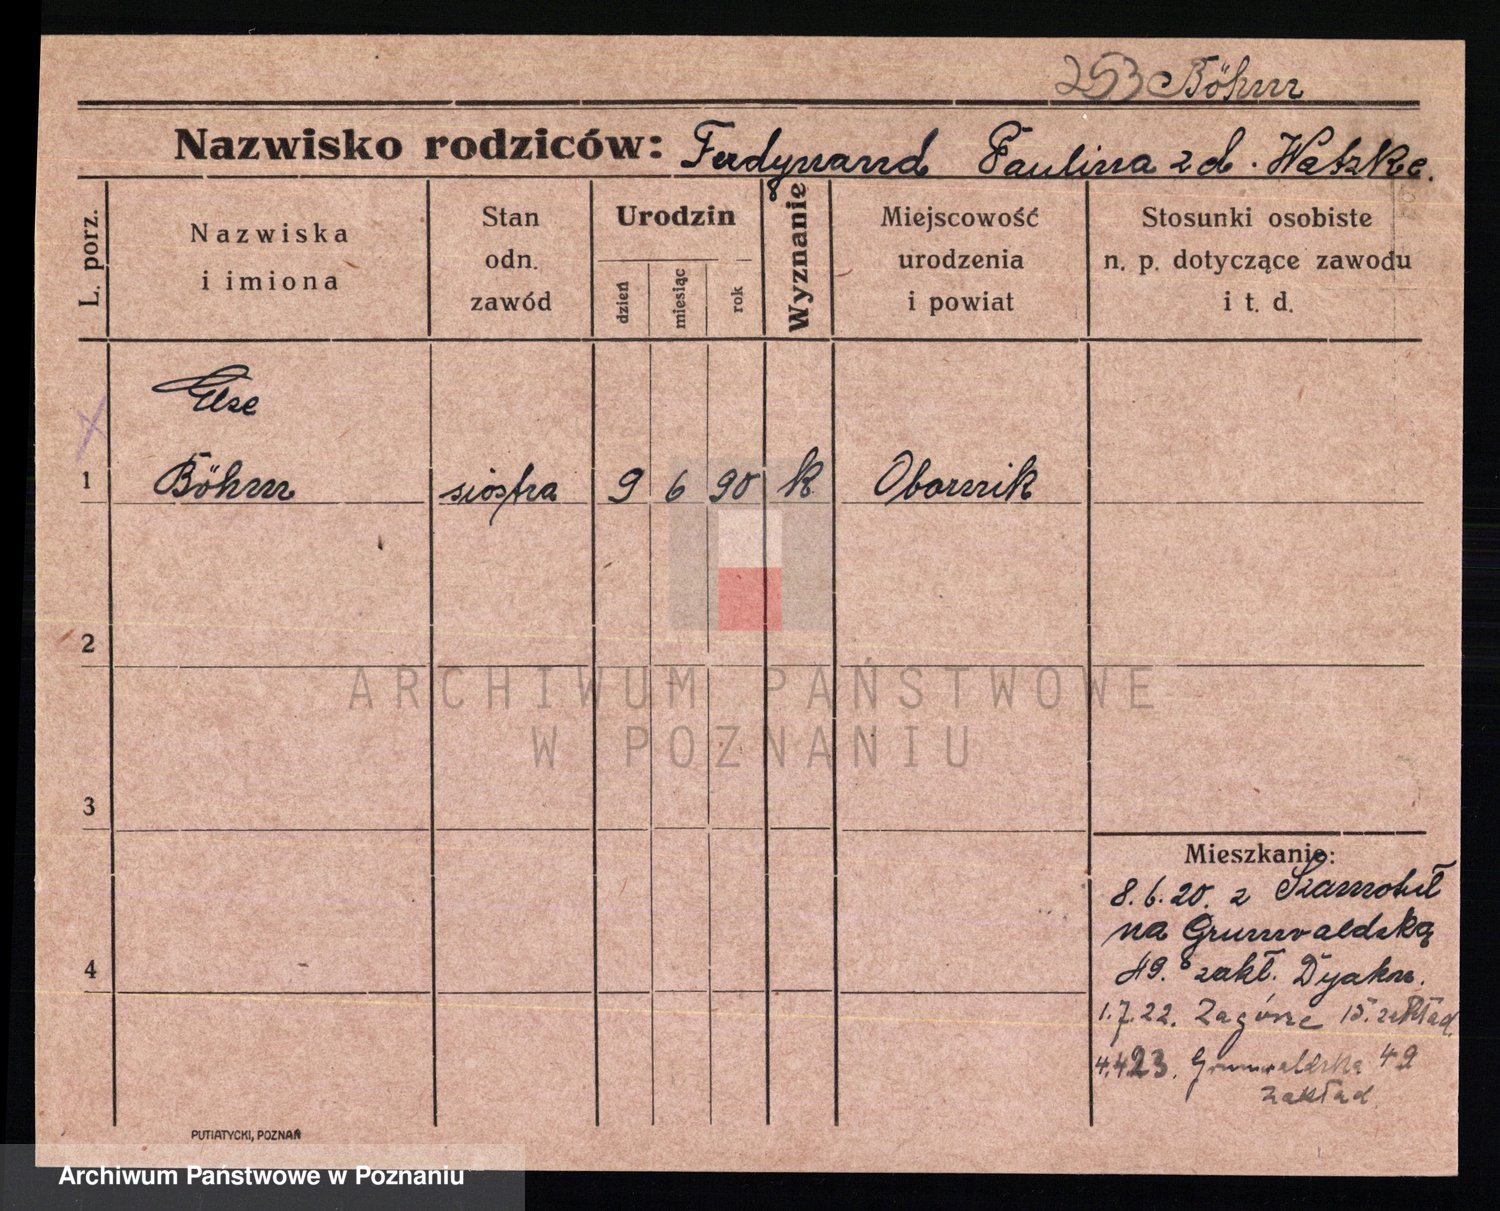 253 Böhm
Nazwisko rodziców: Ferdynand Paulina zd. Watzke.
L. porz.
Nazwiska
i imiona
Stan
odn.
zawód
Urodzin
dzień
miesiąc
rok
Wyznanie
Miejscowość
urodzenia
i powiat
Stosunki osobiste
n. p. dotyczące zawodu
i t. d.
Else
1 Böhm siostra 9 6 90 k Obornik
2
ARCHIWUM PAŃSTWOWE
W POZNANIU
3
Mieszkanie:
8.6.20. z
na Grunwaldską
49. zakł. Dyakon.
4
1.7.22. Zagórze 15. zakład.
4.4.23. Grunwaldska 49
zakład
PUTIATYCKI, POZNAŃ
Archiwum Państwowe w Poznaniu